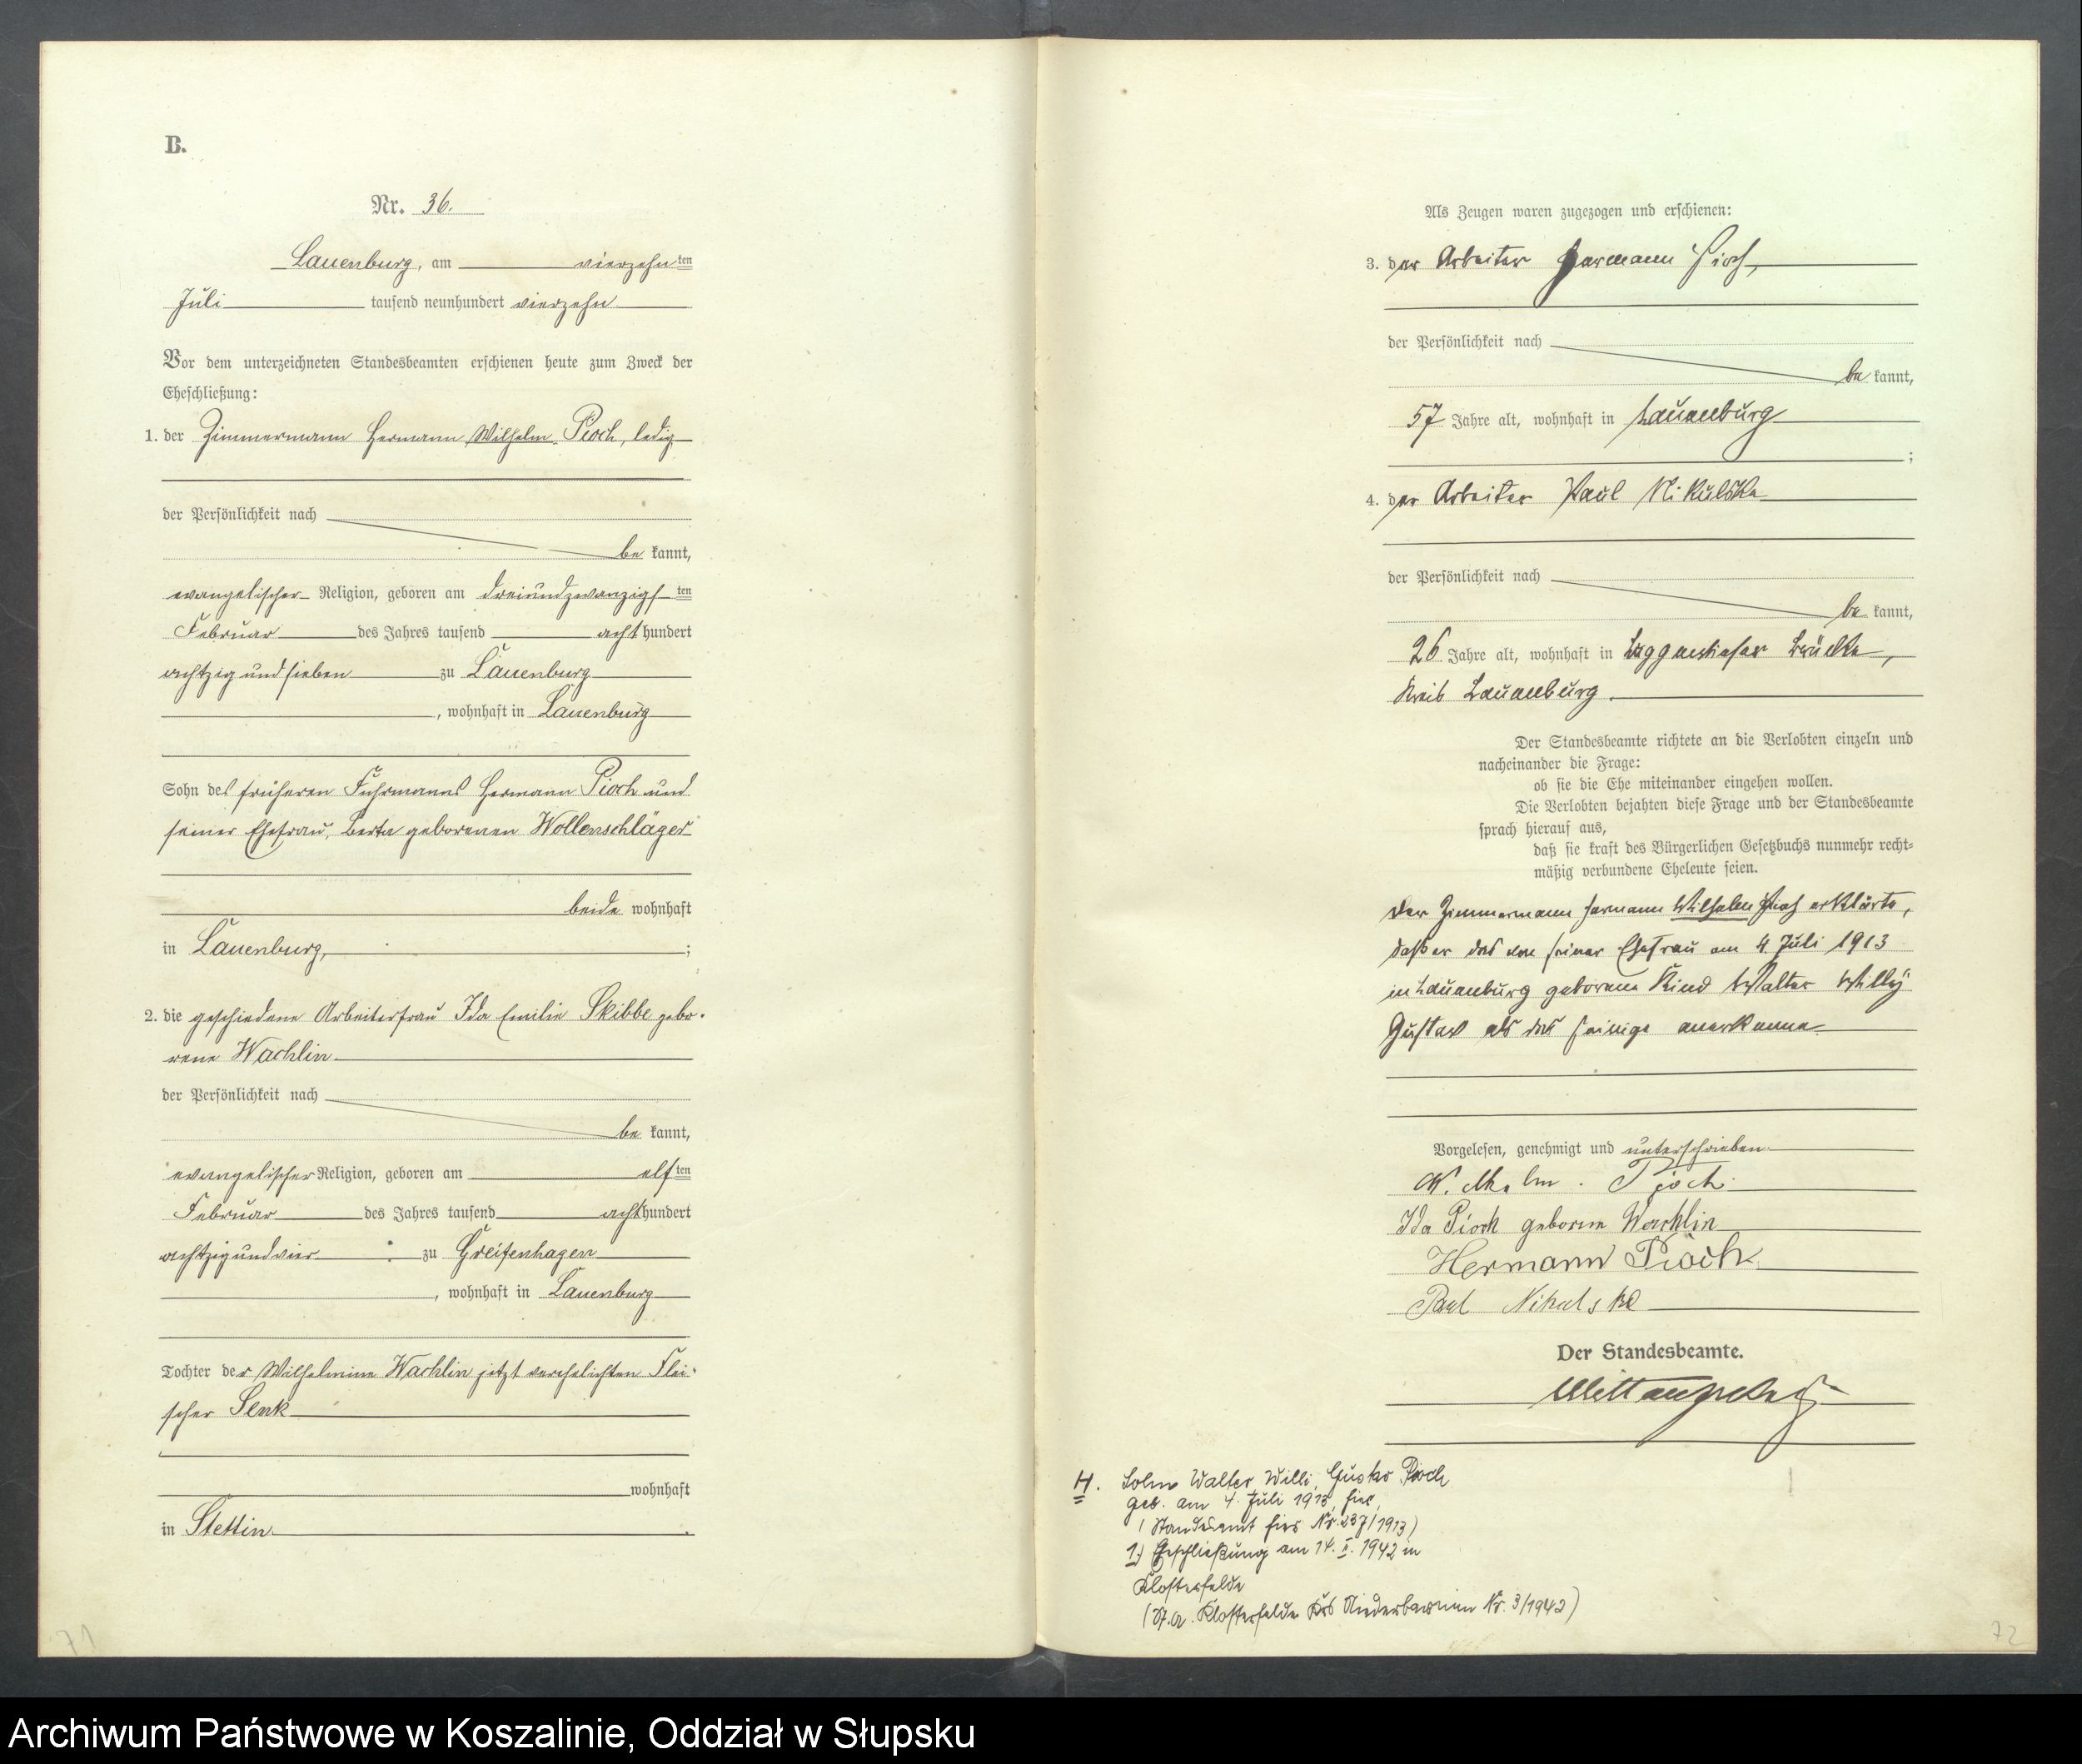 B.
Nr. 36.
Lauenburg, am vierzehnten
Juli tausend neunhundert vierzehn
Vor dem unterzeichneten Standesbeamten erschienen heute zum Zweck der
Eheschließung:
1. der Zimmermann Hermann Wilhelm Pioch, ledig
der Persönlichkeit nach
be kannt,
evangelischer Religion, geboren am dreiundzwanzigsten
Februar des Jahres tausend acht hundert
achtzig und sieben zu Lauenburg
, wohnhaft in Lauenburg
Sohn des früheren Fuhrmanns Hermann Pioch und
seiner Ehefrau, Berta geborenen Wollenschläger
beide wohnhaft
in Lauenburg, ;
2. die geschiedene Arbeiterfrau Ida Emilie Skibbe gebo-
rene Wachlin
der Persönlichkeit nach
be kannt,
evangelischer Religion, geboren am elften
Februar des Jahres tausend acht hundert
achtzig und vier zu Greifenhagen
, wohnhaft in Lauenburg
Tochter der Wilhelmine Wachlin jetzt verehelichten Flei-
scher Senk
wohnhaft
in Stettin.
71
Als Zeugen waren zugezogen und erschienen:
3. der Arbeiter Hermann Pioch,
der Persönlichkeit nach
be kannt,
57 Jahre alt, wohnhaft in Lauenburg
;
4. der Arbeiter Paul Nikulske
der Persönlichkeit nach
be kannt,
26 Jahre alt, wohnhaft in Brücke,
Kreis Lauenburg.
Der Standesbeamte richtete an die Verlobten einzeln und
nacheinander die Frage:
ob sie die Ehe miteinander eingehen wollen.
Die Verlobten bejahten diese Frage und der Standesbeamte
sprach hierauf aus,
daß sie kraft des Bürgerlichen Gesetzbuchs nunmehr recht-
mäßig verbundene Eheleute seien.
Der Zimmermann Hermann Wilhelm Pioch erklärte,
daß er das von seiner Ehefrau am 4. Juli 1913
in Lauenburg geborene Kind Walter Willy
Gustav als das seinige anerkenne
Vorgelesen, genehmigt und unterschrieben
Wilhelm Pioch.
Ida Pioch geborene Wachlin
Hermann Pioch
Paul Nikulske
Der Standesbeamte.
H. Sohn Walter, Willi, Gustav Pioch
geb. am 4. Juli 1913, hier,
(Standesamt hier Nr. 237/1913)
1.) Eheschließung am 14. II. 1942 in
Klosterfelde
(St.A. Klosterfelde Krs Niederbarnim Nr. 3/1942)
72
Archiwum Państwowe w Koszalinie, Oddział w Słupsku